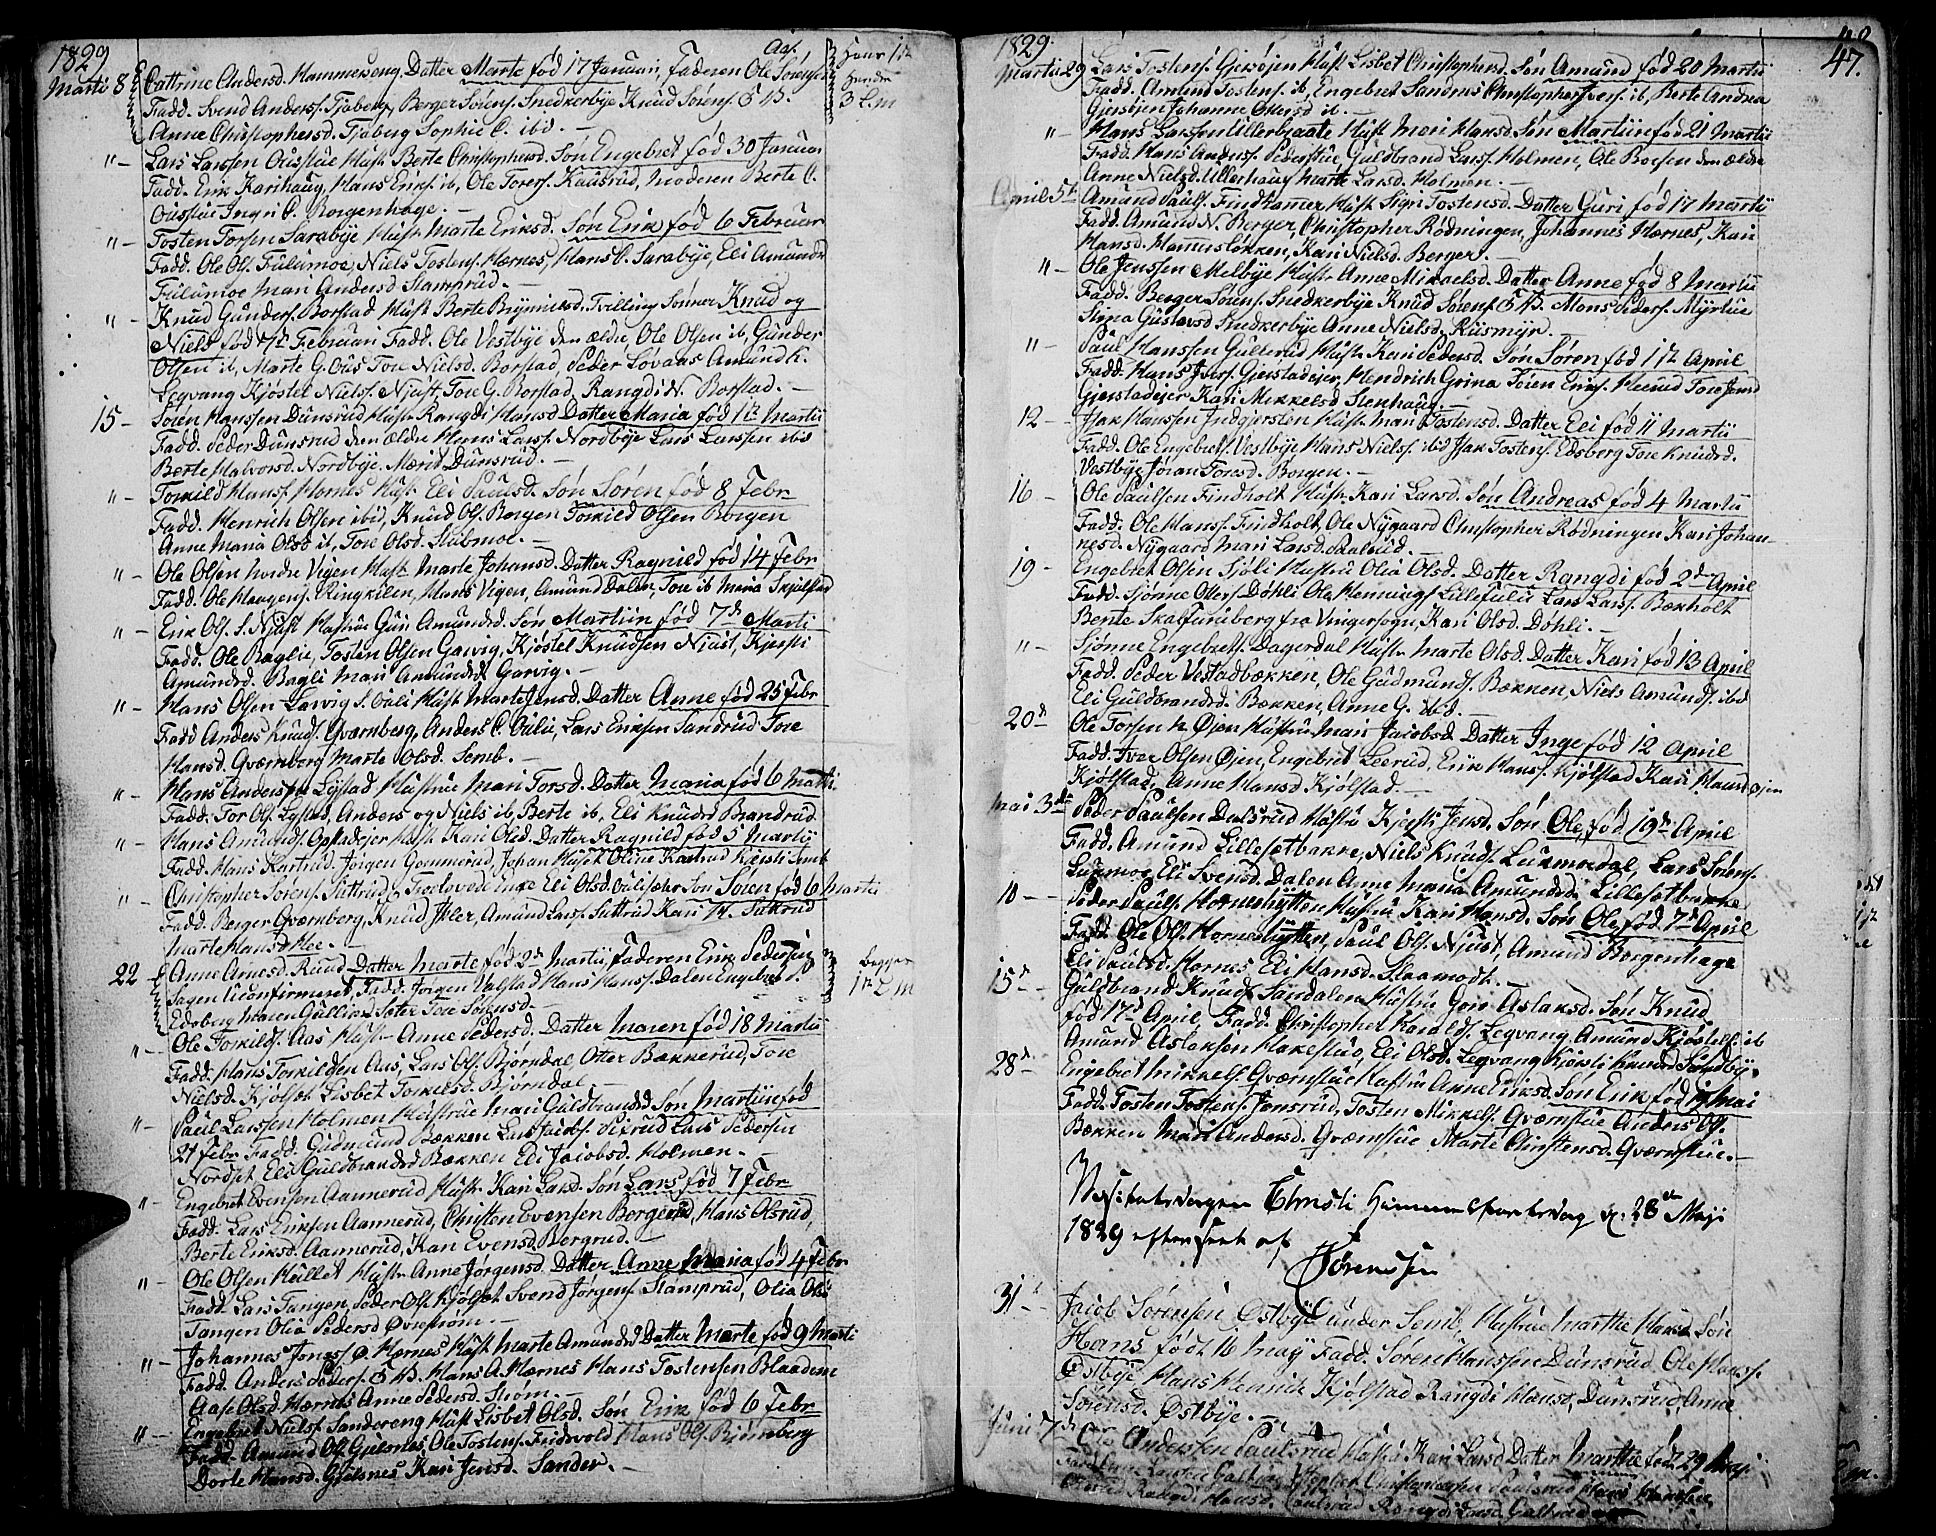 1829
Martii 8 Cattrine Andersd. Hammereng, Datter Marte fød 17 Januari, faderen Ole Sørensen Aas.
Fadd. Svend Anders. Tjaberg, Berger Sørens. Snedkerbye Knud Sørens.
Anne Christophersd. Tjaberg Sophie C. ibid. —
" — Lars Larsen Ousstue Hust. Berte Christophersd. Søn Engebret fød 30 Januari
Fadd. Erik Karihaug, Hans Eriks. ib, Ole Tores. Kausrud, Moderen Berte C.
Ousstue Ingri C. Borgenhage. —
" — Tosten Torsen Sarabye Hust. Marte Eriksd. Søn Erik fød 6 Februar
Fadd. Ole Ols. Fulumoe, Niels Tostens. Hærnes, Hans C. Sarabye, Eli Amundsd
Fulumoe Mari Andersd Stamprud. —
" — Knud Gunders. Borstad Hust. Berte Brynnilsd. Tvilling Sønner Knud og
Niels fød 7de Februari Fadd. Ole Vestbye den ældre, Ole Olsen ib, Gunder
Olsen ib, Marte G. Ous Tore Nielsd. Borstad, Peder Lovaas Amund K.
Legvang Kjøstel Niels. Njust, Tore G. Borstad, Rangdi N. Borstad. —
15 — Søren Hanssen Dunsrud Hust. Rangdi Hansd Datter Maria fød 1te Martii
Fadd. Peder Dunsrud den Ældre Hans Lars. Nordbye Lars Larsen ibid
Berte Halvorsd. Nordbye. Marit Dunsrud. —
" — Tomild Hans. Hornes Hust. Eli Paulsd. Søn Søren fød 8 Febr
Fadd. Henrich Olsen ibid, Knud Ols. Borgen Tomild Olsen Borgen
Anne Maria Olsd ib, Tore Olsd. Stubmoe. —
" — Ole Olsen nordre Vigen Hust. Marte Johansd. Datter Ragnild fød 14 Febr
Fadd. Ole Haagens. Ringkilen, Hans Vigen, Amund Dalen, Tore ib Maria Skjølstad
" — Erik Ols. S. Njust Hustrue Guri Amundsd. Søn Martiin fød 7de Marti
Fadd. Ole Baglie, Tosten Olsen Garvig, Kjøstel Knudsen Njust, Kjersti
Amundsd. Bagli Mari Amundsd Garvig. —
" — Hans Olsen Larvig S. Huli Hust. Marte Jensd. Datter Anne fød 25 Febr
Fadd Anders Knuds. Qværnberg, Anders C. Oulie, Lars Eriksen Sandrud Tore
Hansd. Qværnberg Marte Olsd. Semb. —
" — Hans Anders. Lystad Hustrue Mari Torsd. Datter Maria fød 6 Martii
Fadd. Tor Ols. Lystad, Anders og Niels ib, Berte ib, Eli Knudsd Brandrud
" — Hans Amunds. Opstadejer Hust. Kari Olsd. Datter Ragnild fød 5 Martii
Fadd. Hans Kastrud, Jørgen Gommerud, Johan Huset Oline Kastrud Kjersti
" — Christopher Sørens. Suttrud, Troelovede Enke Eli Olsd. Søn Søren fød 6 Martii
Fadd. Berger Qværnberg, Knud Iler, Amund Lars. Suttrud Kari H. Suttrud
Marte Hansd Moe. —
22 — Anne Arnesd. Ruud Datter Marte fød 2de Martii, faderen Erik Pedersen
Sagen Uconfirmeret, Fadd. Jørgen Valstad Hans Hans. Dalen Engebret P.
Edsberg Maren Gullien Peter Tore Sørensd. —
" — Ole Tomilds. Aas Hust. Anne Pedersd. Datter Maren fød 18 Martii
Fadd. Hans Tomildsen Aas, Lars Ols. Bjørndal Otter Bækkerud, Tore
Nielsd. Kjølset Lisbet Tomilsd. Bjørndal —
" — Paul Larssen Holmen Hustrue Mari Guldbrandsd Søn Martiin fød
27 Febr Fadd. Gudmund Bækken Lars Jacobs. Seirud Lars Pedersen
Nordset Eli Guldbrandsd Bækken Eli Jacobsd. Holmen. —
" — Engebret Evensen Aannerud Hust. Kari Larsd. Søn Lars fød 7 Febr
Fadd. Lars Eriksen Aannerud, Christen Evensen Bergerud, Hans Olsrud,
Berte Eriksd. Aannerud, Kari Evensd. Bergrud. —
" — Ole Olsen Hullet Hust. Anne Jørgensd. Datter Anne Maria fød 4 Febr
Fadd. Lars Tangen, Peder Ols. Kjølset Svend Jørgens. Stamprud, Olia Ols.
Tangen Olia Pedersd Øvrestrøm. —
" — Johannes Jons. Ø. Hærnes Hust. Marte Amundsd Datter Marte fød 9 Marti
Fadd. Anders Peders. Hans A. Hærnes Hans Tostensen Blaadem
Aase Olsd Hærnes Anne Pedersd. Strøm. —
" — Engebret Niels. Sandereng Hust. Lisbet Olsd. Søn Erik fød 6 Febr
Fadd. Amund Ols. Gulsnes, Ole Tostens. Fridsvold Hans Ols. Biørneberg
Dorte Hansd. Gulsnes, Kari Jensd. Sander. —
3 L.m
Begge
1te L.m
1829.
47.
Martii 29 Lars Tostens. Gjersøjen Hust. Lisbet Christophersd. Søn Amund fød 20 Martii
Fadd. Amund Tostens. ib, Engebret Sandnes Christopher Ivers. ib, Berte Andrea
Gjersøjen Johanne Ottersd ib. —
" — Hans Larssen Ullerhgaate Hust. Mari Hansd. Søn Martiin fød 21 Martii
Fadd. Hans Anders. Pederstue, Guldbrand Lars. Holmen, Ole Boesen den ældre
Anne Nielsd. Ullerhaug Marte Larsd. Holmen. —
April 5te Amund Pauls. Findhammer Hust. Sigri Tostensd. Datter Guri fød 17 Martii
Fadd. Amund N. Berger, Christopher Rødningen, Johannes Hærnes, Kari
Hansd. Hammerløkken, Kari Nielsd. Berger. —
" — Ole Jenssen Melbye Hust. Anne Mikaelsd. Datter Anne fød 8 Martii
Fadd. Berger Sørens. Snedkerbye Knud Sørens. Mons Peders. Myrstue
Stina Gustavsd Snedkerbye Anne Nielsd. Riismyr. —
" — Paul Hanssen Gullerud Hust. Kari Pedersd. Søn Søren fød 1te April
Fadd. Hans Ivers. Gjerstadejer, Hendrich Grina Toien Eriks. Heerud Tore Jensd
Gjerstadejer Kari Mikkelsd Stenhaug. —
12 — Isak Hanssen Indgjersten Hust. Mari Tostensd. Datter Eli fød 11 Martii
Fadd. Ole Engebrets. Vestbye Hans Niels. ibid Isak Tostens. Edsberg Tore Knudsd.
Vestbye Jøran Toresd. Borgen. —
16 — Ole Paulsen Findholt Hust. Kari Larsd. Søn Andreas fød 4 Martii
Fadd. Ole Hans. Findholt, Ole Nygaard Christopher Rødningen Kari Johan-
nesd. Nygaard Mari Larsd. Paalsrud. —
19 — Engebret Olsen Sjøli Hustru Olia Olsd. Datter Rangdi fød 2den April
Fadd. Sjønne Otters. Døhli Ole Hemings. Lillefulu Lars Lars. Bækholt
Bente Skalfuruberg fra Vingersogn, Kari Olsd. Døhli. —
" — Sjønne Engebrets. Dagerdal Hust. Marte Olsd. Datter Kari fød 13 April
Fadd. Peder Vestadbækken, Ole Gudmunds. Bækken, Niels Amunds. ibid
Eli Guldbrandsd. Bækken, Anne G. ibd. —
20de Ole Torsen N. Øjen Hustrue Mari Jacobsd. Datter Inge fød 12 April
Fadd. Iver Olsen Øjen, Engebret Leerud, Erik Hans. Kjølstad Kari Hansd Øjen
Kjølstad, Anne Hansd Kjølstad. —
Mai 3die Peder Paulsen Dulsrud Hustru Kjersti Jensd. Søn Ole, fød 19de April
Fadd. Amund Lillesætbakke, Niels Knuds. Lurmordal, Lars Sørens.
Lurmoe Eli Svensd. Dalen Anne Maria Amundsd. Lillesætbakke
10 — Peder Pauls. Horneshytten Hustru Kari Hansd. Søn Ole, fød 7de April
Fadd. Ole Ols. Horneshytten, Paul Ols. Njust, Amund Borgenhage
Eli Paulsd. Hornes Eli Hansd. Slaamodt. —
15de — Guldbrand Knuds. Sandalen Hustru Goro Aslaksd. Søn Knud
fød 17de April Fadd. Christopher Haralds. Legvang Amund Kjøstels. ib
Amund Aslaksen Hakestad, Eli Olsd. Legvang Kjersti Knudsd Sandbye.
28de — Engebret Mikkels. Qværnstue Hustru Anne Eriksd. Søn Erik fød Mai
Fadd. Tosten Tostens. Jonsrud, Tosten Mikkels. Qværnstue Anders Ols.
Bækken Mari Andersd. Qværnstue Marte Christensd. Qværnstue. —
Visitatsdagen Christi Himmelfartsdag d. 28de Maji
1829 efterseet af
Sørenssen
31te — Jacob Sørensen Østbye under Semb Hustrue Marthe Hansd Søn
Hans født 16 May Fadd. Søren Hanssen Dunsrud, Ole Hans.
Østbye Hans Henrik Kjølstad Rangdi Hansd. Dunsrud, Anne
Sørensd. Østbye. —
Juni 7de Ole Andersen Paulsrud Hustru Kari Larsd Datter Marthe fød 29 Maji